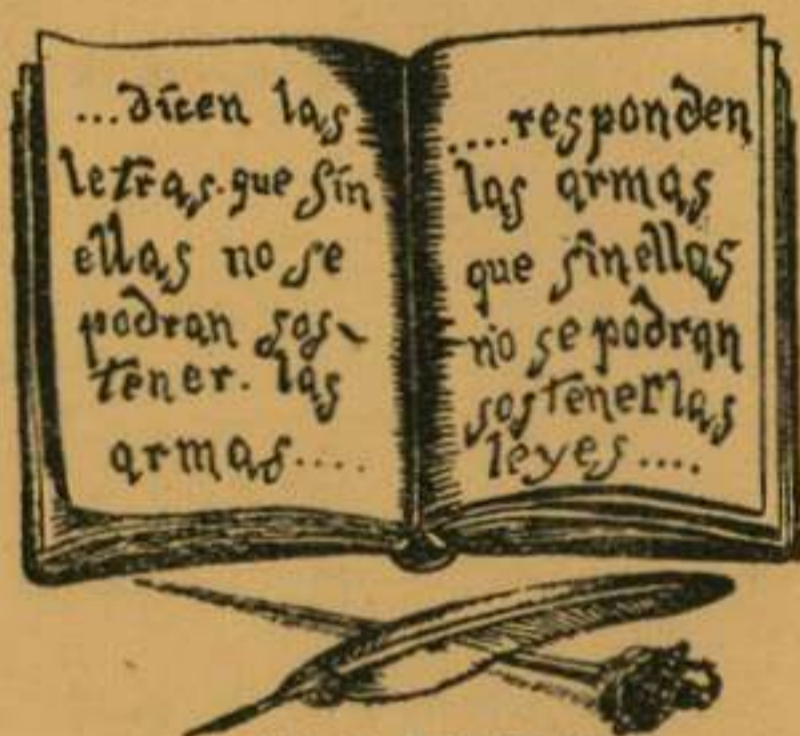 ...dicen las
letras. que sin
ellas no se
podran sos-
tener. las
armas....
....responden
las armas
que sin ellas
no se podran
sostener las
leyes....